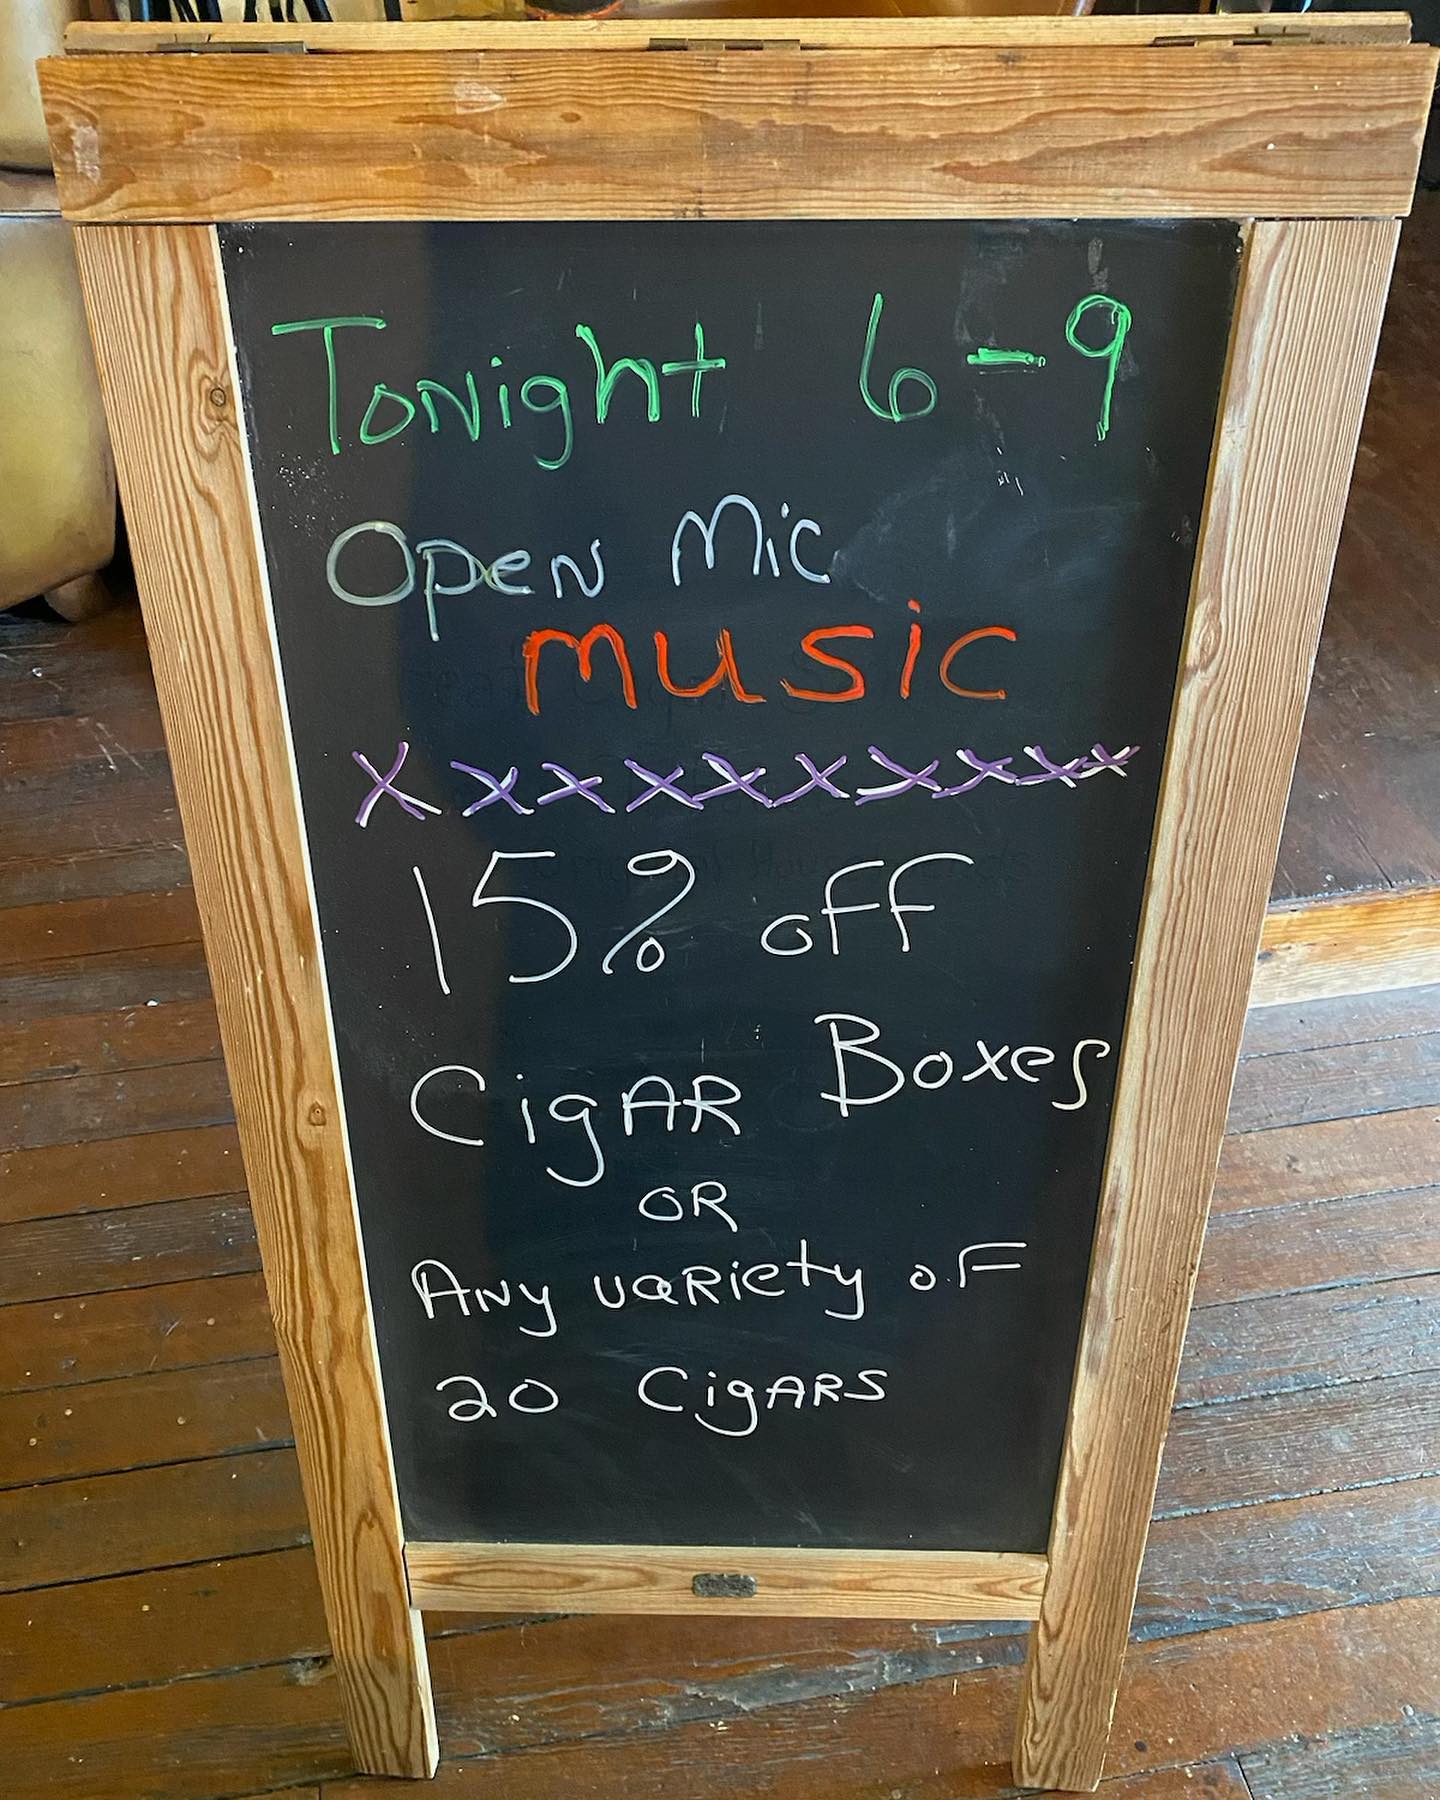 Tonight 6-9
Open Mic
music
xxxxxxxxxx
15% off
CigAR Boxes
OR
ANy vaRiety of
20 CigARS